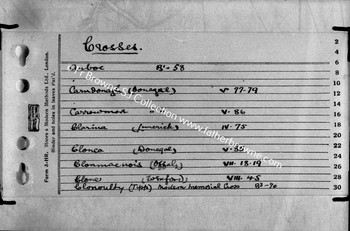 Crosses.
Arboe B'-58
Carndonagh (Donegal) V 77-79
Carrowmore " V. 86
Clarina (Limerick) IV. 75
Clonca (Donegal) V-85
Clonmacnois (Offaly) VII. 13-19
Clone (Wexford) VIII. 4-5
Clonoulty (Tipp) Modern Memorial Cross B3-90
Form J-HR. Moore's Modern Methods Ltd., London.
Binder and holes in leaves Pat'd.
Fr Browne's SJ Collection
www.fatherbrowne.com
2
4
6
8
10
12
14
16
18
20
22
24
26
28
30